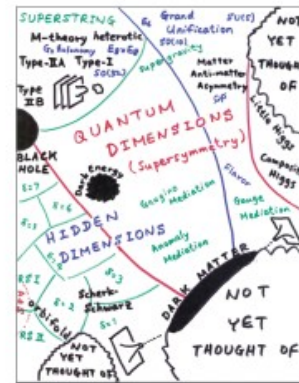 SUPERSTRING
M-theory heterotic
Type-IIA Type-I
SO(32)
Type
IIB
E6 Grand
Unification
SO(10)
SU(5)
supergravity
Matter
Anti-matter
Asymmetry
NOT
YET
THOUGHT OF
Little Higgs
Composite
Higgs
QUANTUM
DIMENSIONS
(Supersymmetry)
BLACK
HOLE
Dark Energy
Flavor
Gaugino
Mediation
Gauge
Mediation
Anomaly
Mediation
HIDDEN
DIMENSIONS
δ=7
δ=6
δ=5
δ=3
δ=2
δ=1
RSI
RSII
AdS
orbifold
Scherk-
Schwarz
DARK MATTER
NOT
YET
THOUGHT OF
NOT
YET
THOUGHT OF